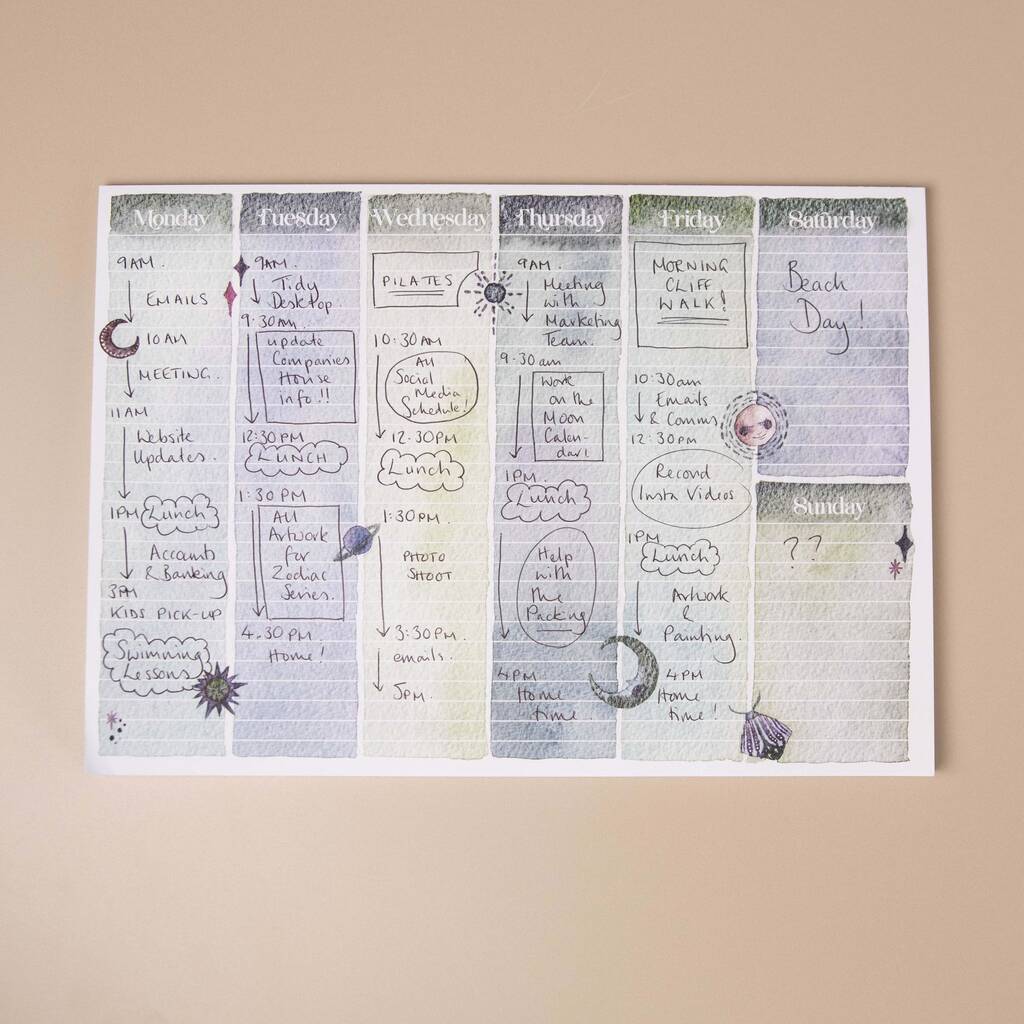 Monday
9AM.
EMAILS
10AM
MEETING.
11AM
Website
Updates.
1PM Lunch
Accounts
& Banking
3PM
KIDS PICK-UP
Swimming
Lessons
Tuesday
9AM.
Tidy
Desktop.
9.30am.
update
Companies
House
info.!!
12:30PM
LUNCH
1:30PM
All
Artwork
for
Zodiac
Series.
4.30PM
Home!
Wednesday
PILATES
10:30AM
All
Social
Media
Schedule!
12.30PM
Lunch
1:30PM.
PHOTO
SHOOT
3:30PM.
emails.
5PM.
Thursday
9AM.
Meeting
with
Marketing
Team.
9.30am
Work
on the
Moon
Calen-
dar!
1PM.
Lunch
Help
with
the
Packing
4PM
Home
time.
Friday
MORNING
CLIFF
WALK!
10:30am
Emails
& Comms
12:30PM
Record
Insta Videos
1PM
Lunch
Artwork
&
Painting.
4PM
Home
time!
Saturday
Beach
Day!
Sunday
??